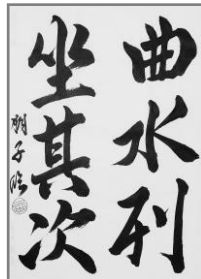 曲水列
坐其次
朝子臨